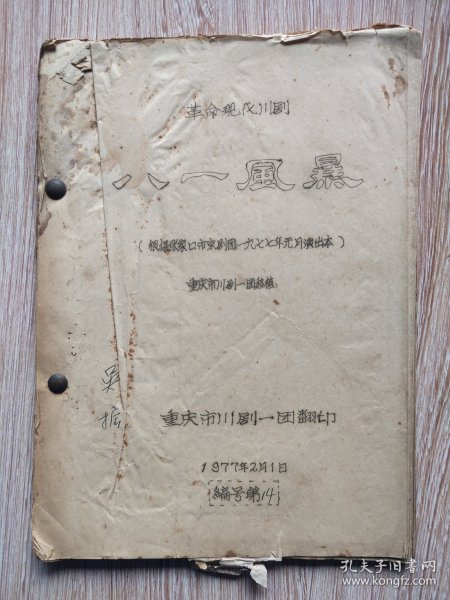 革命现代川剧
八一風暴
(根据张家口市京剧团一九七七年元月演出本)
重庆市川剧一团移植
吴
重庆市川剧一团翻印
1977年2月1日
编号第14
孔夫子旧书网
www.kongfz.com